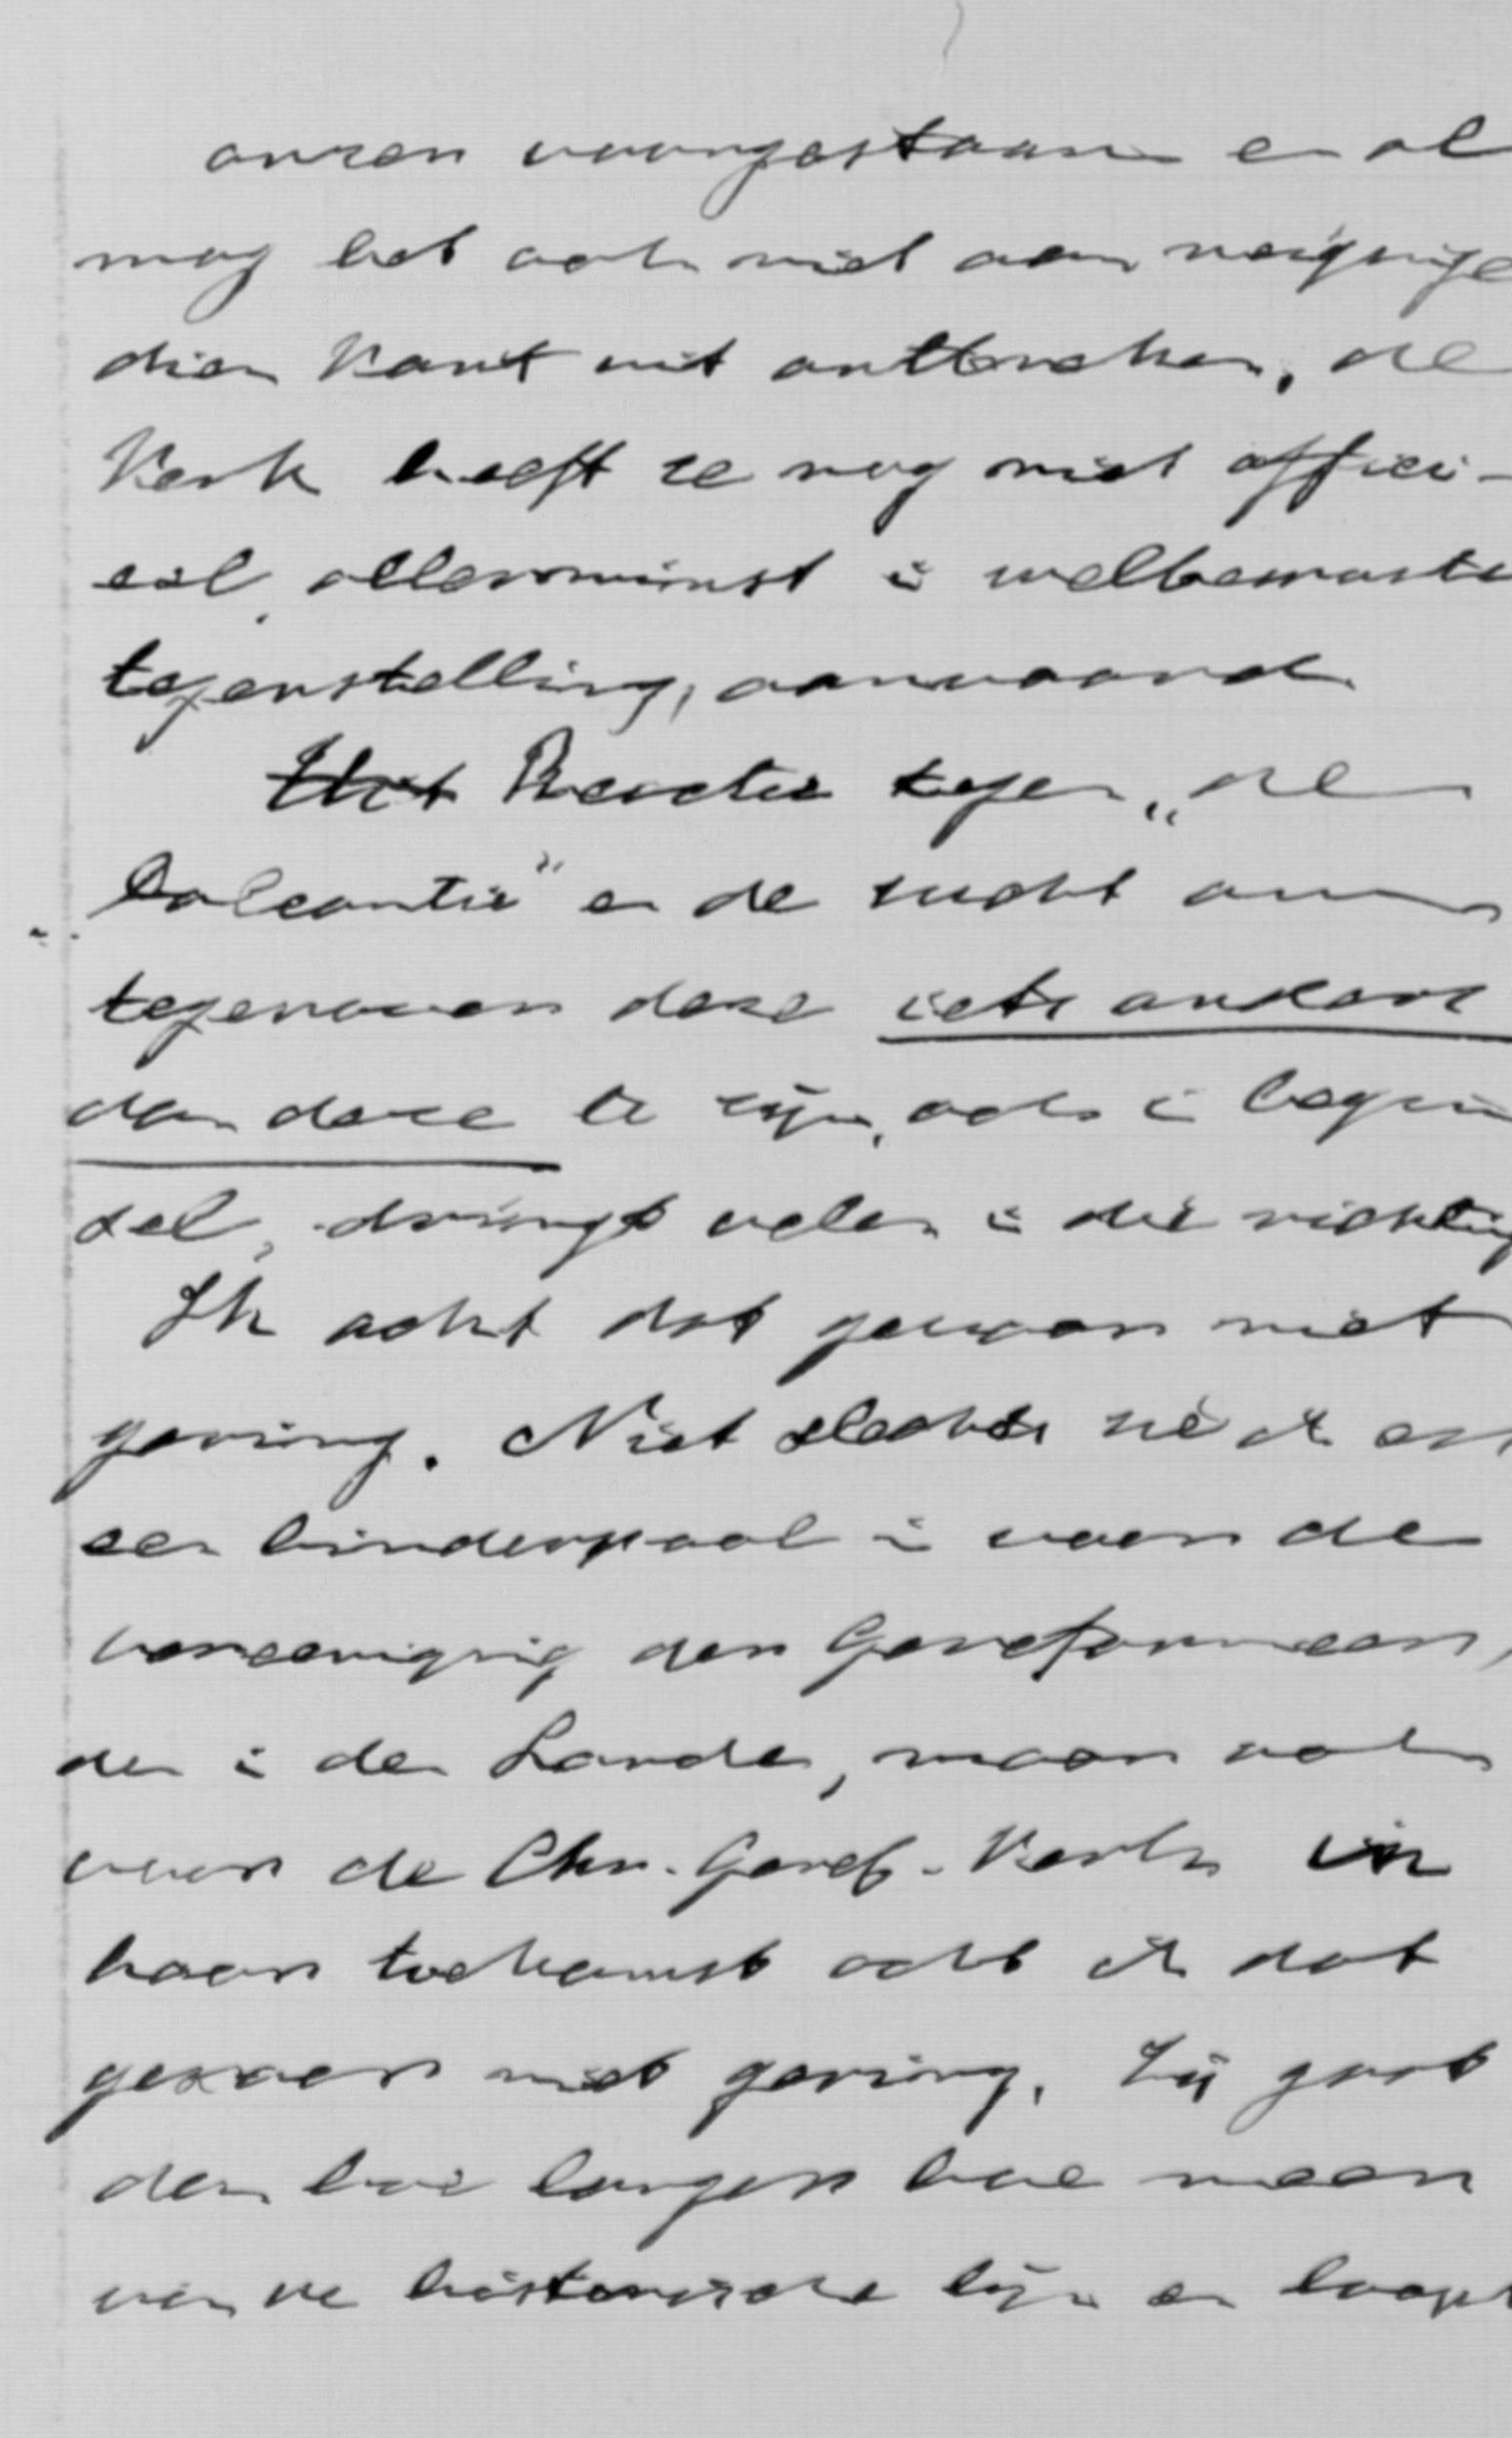 onzen voorgestaan en al
mag het ook niet aan neiginge
dien kant uit ontbreken, de
Kerk heeft ze nog niet offici-
eel, allerminst in welbewuste
tegenstelling, aanvaard.
Het Reactie tegen „de
Doleantie" en de zucht om
tegenover deze iets anders
dan deze te zijn, ook in begin
sel, dringt velen in die richting
Ik acht dat gevaar niet
gering. Niet slechts zie ik er
een hinderpaal in voor de
vereeniging der Gereformeer,
den in den Lande, maar ook
voor de Chr. Geref. Kerk in
haar toekomst acht ik dat
gevaar niet gering. Zij gaat
dan hoe langer hoe meer
van de historische lijn en loopt